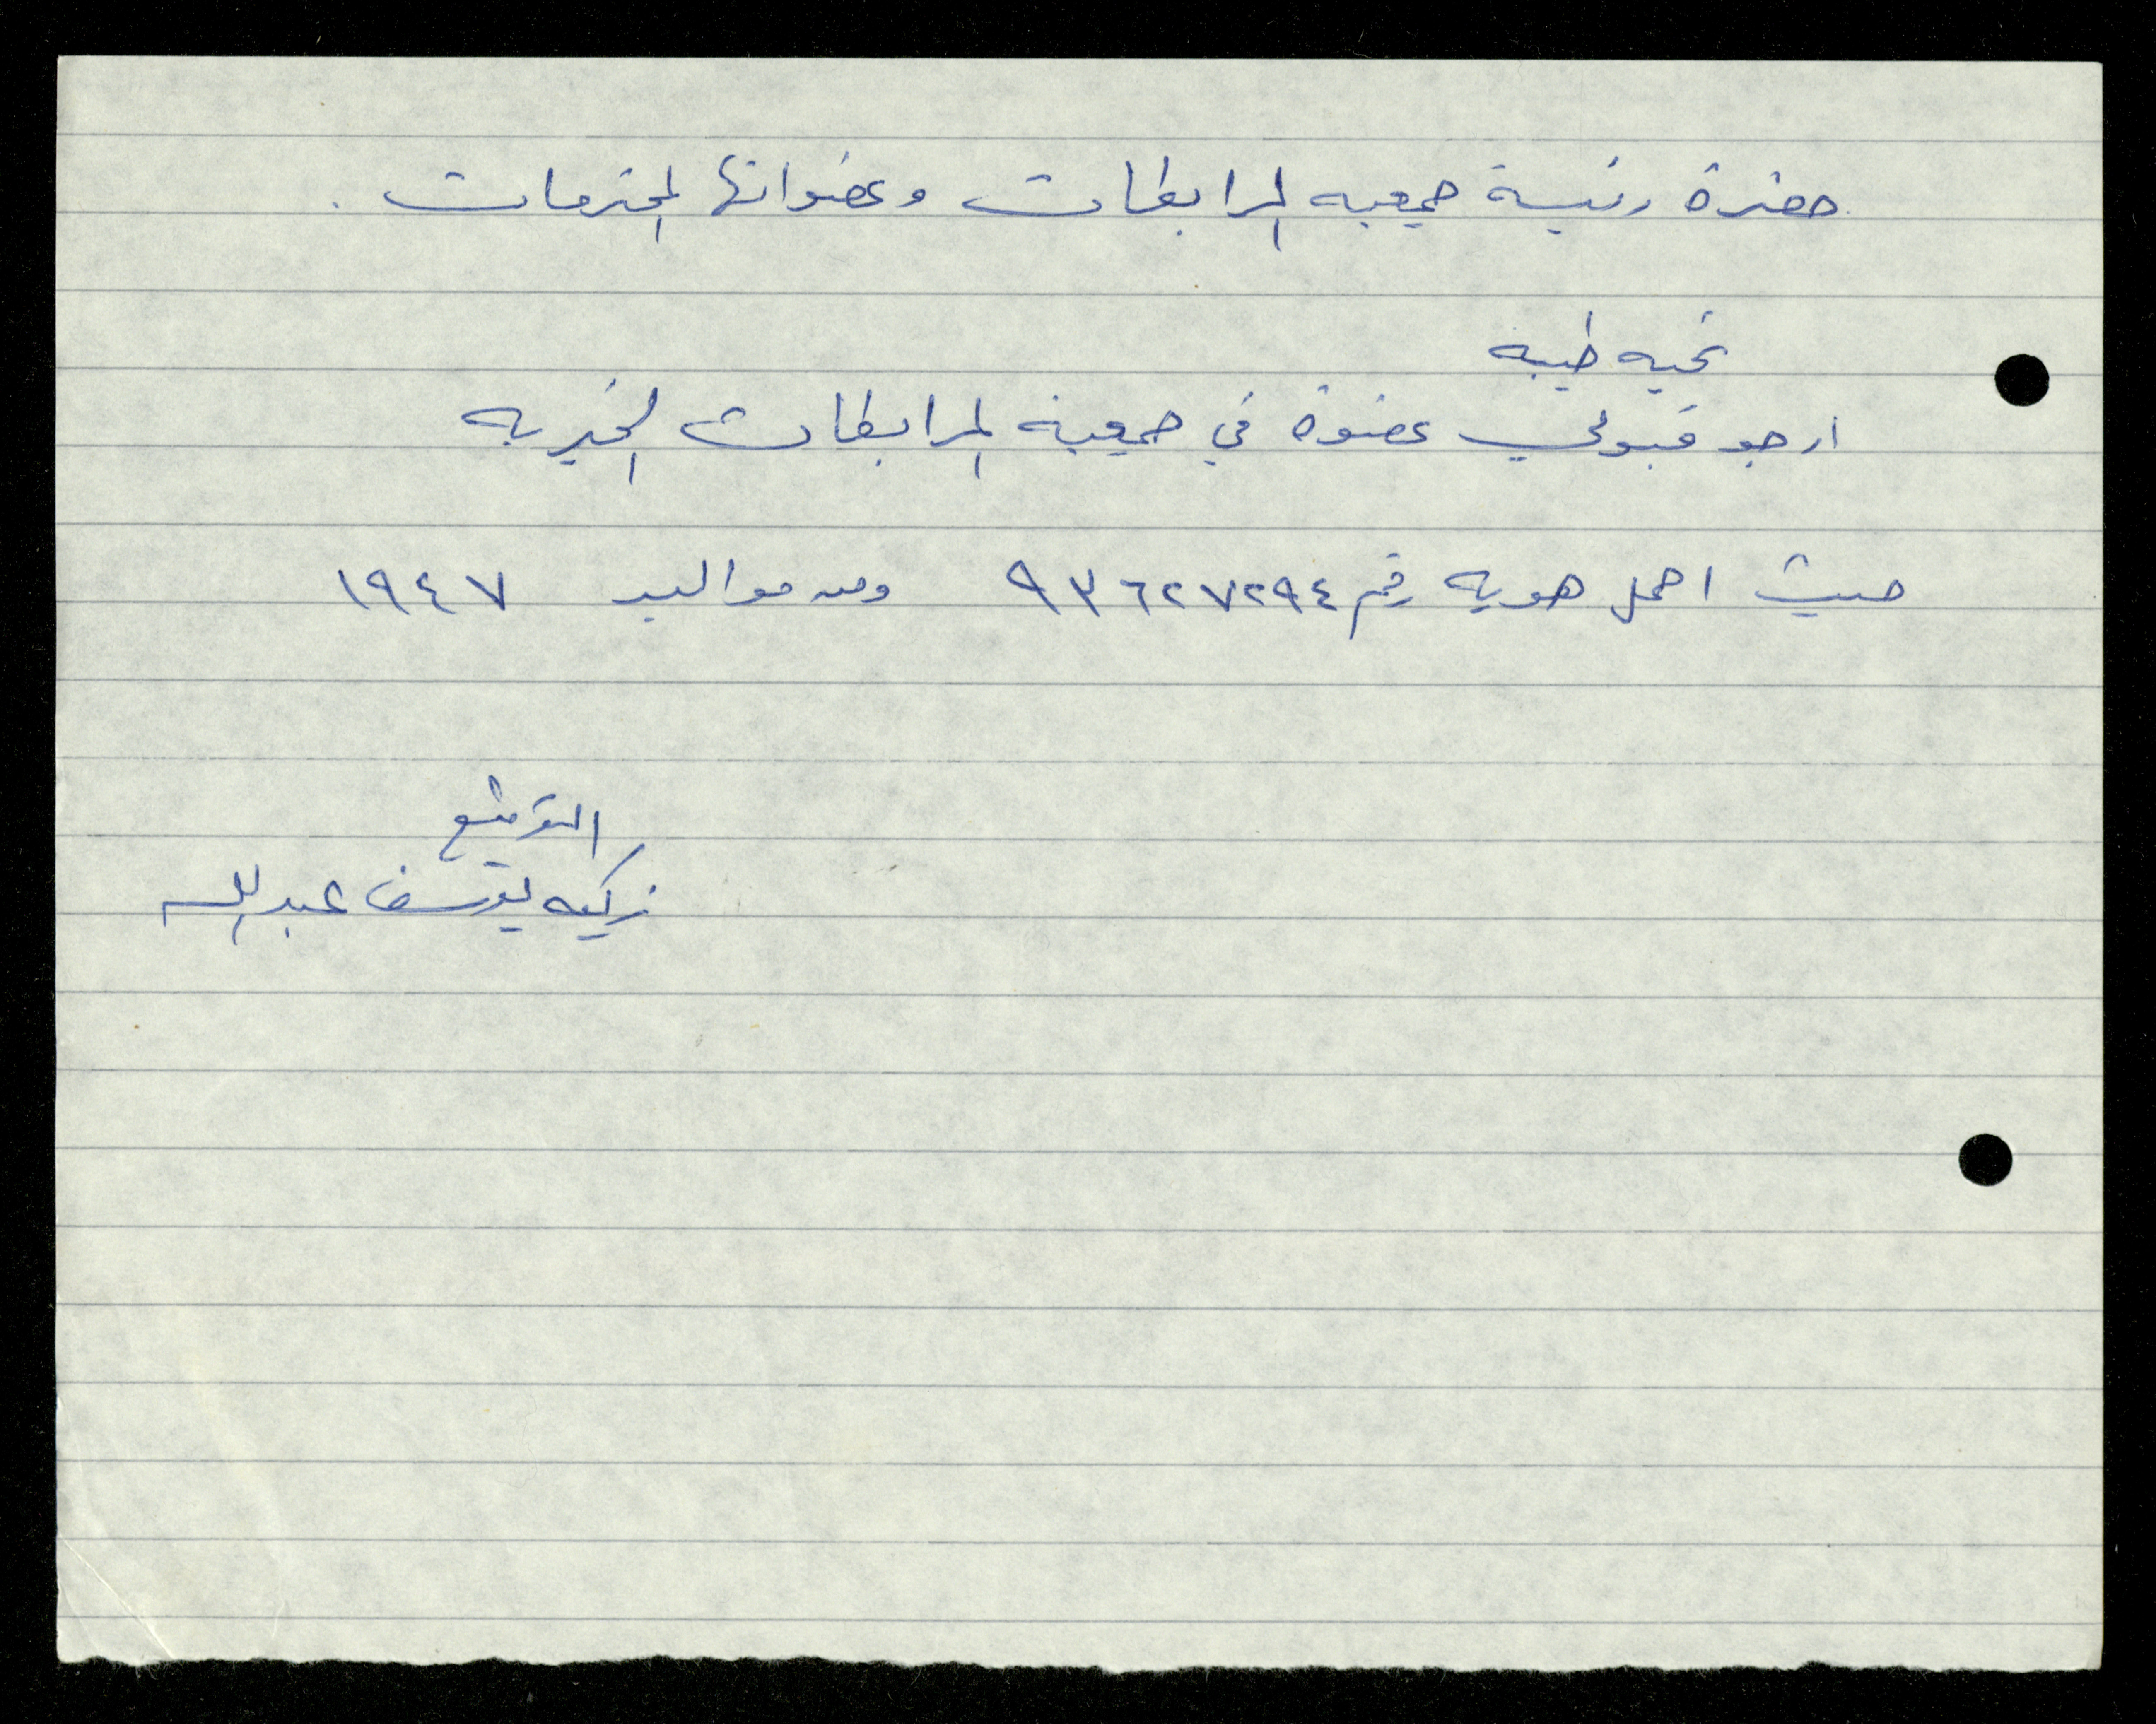 حضرة رئيسة جمعيه المرابطات وعضواتها المحترمات .
تحيه طيبه
ارجو قبولي عضوة في جمعية المرابطات الخيريه
حيث احمل هويه رقم ٩٣٦٢٧٢٩٤ ومن مواليد ١٩٤٧
التوقيع
زكيه يوسف عبدالله